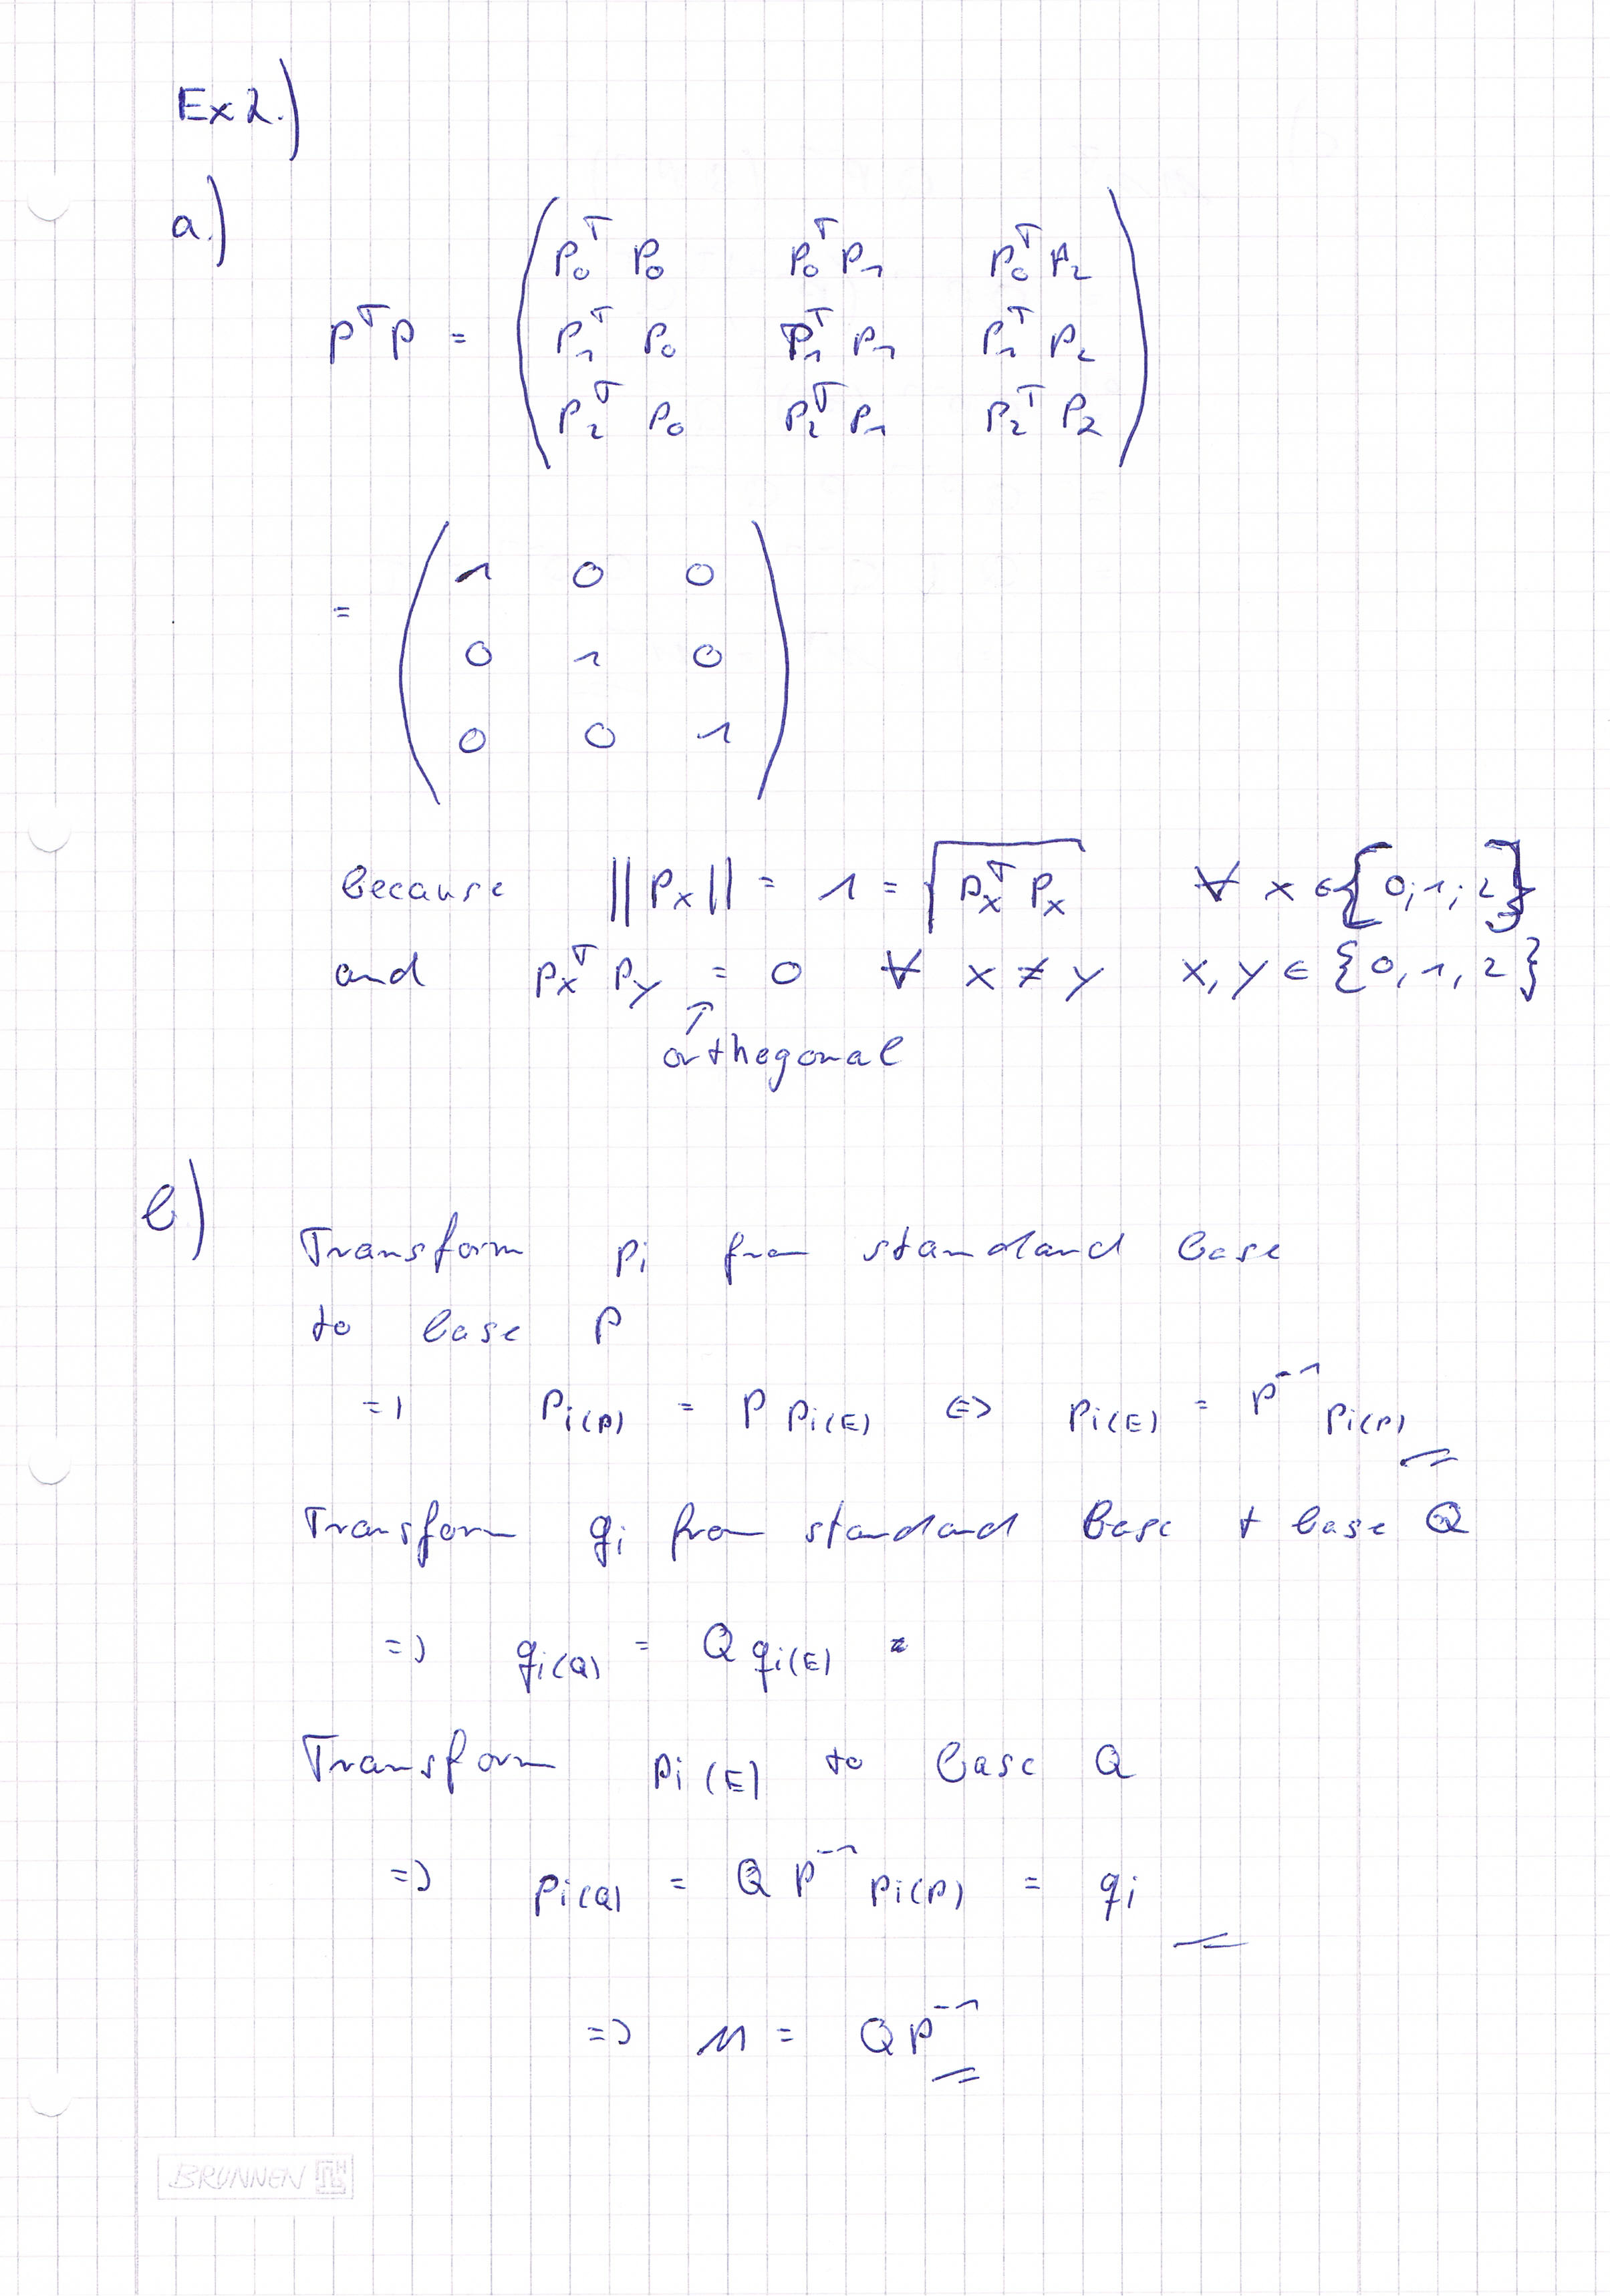 Ex 2.)
a.)
P^T P = ( p_0^T p_0 p_0^T p_1 p_0^T p_2
p_1^T p_0 p_1^T p_1 p_1^T p_2
p_2^T p_0 p_2^T p_1 p_2^T p_2 )
= ( 1 0 0
0 1 0
0 0 1 )
because ||p_x|| = 1 = √(p_x^T p_x) ∀ x ∈ {0;1;2}
and p_x^T p_y = 0 ∀ x ≠ y x, y ∈ {0,1,2}
↑
orthogonal
b)
Transform p_i from standard base
to base P
=> p_i(P) = P p_i(E) <=> p_i(E) = P^-1 p_i(P)
Transform q_i from standard base t base Q
=> q_i(Q) = Q q_i(E) =
Transform p_i(E) to base Q
=> p_i(Q) = Q P^-1 p_i(P) = q_i
=> M = Q P^-1
BRUNNEN